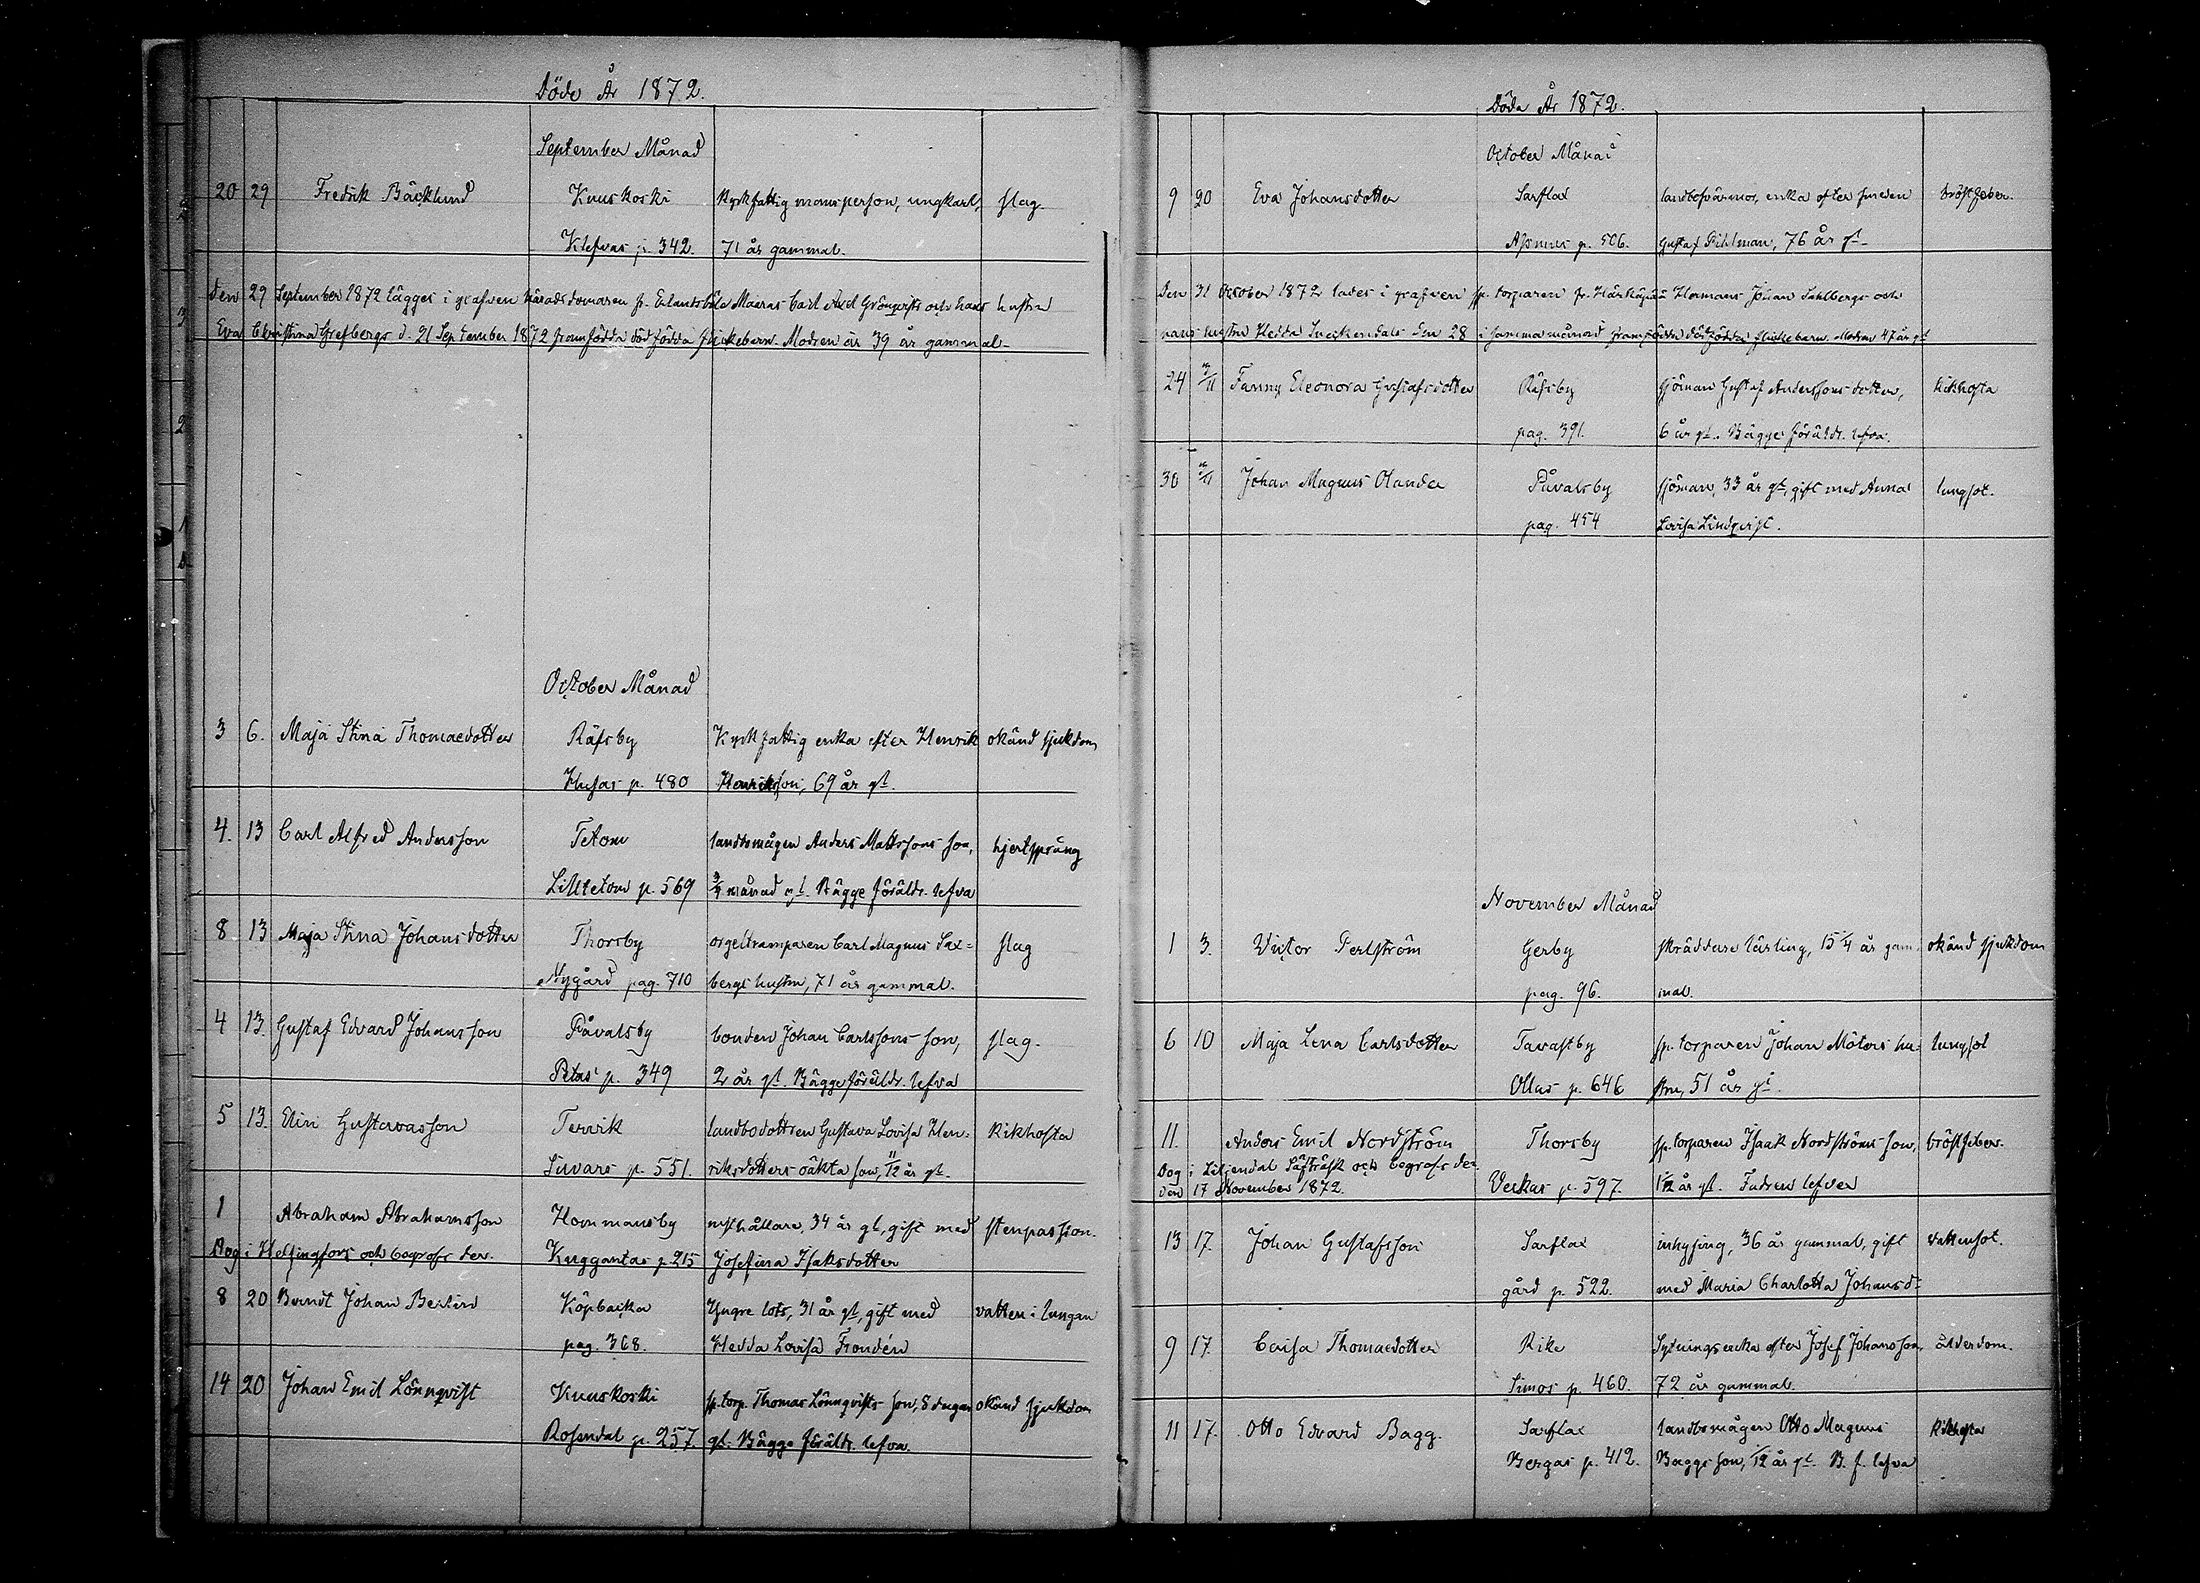 Döde År 1872.
September Månad
20 29 Fredrik Bäcklund Kuuskoski Kyrkfattig mansperson, ungkarl, slag.
Klefvas p. 342. 71 år gammal.
Den 29 September 1872 lägges i grafven häradsdomaren fr. Erlandsböle Maaras Carl Axel Grönqvists och hans hustru
Eva Christina Grefbergs d. 21 September 1872 framfödda dödfödda flickebarn. Modren är 39 år gammal.
October Månad
3 6. Maja Stina Thomaedotter Räfsby Kyrkfattig enka efter Henrik okänd sjukdom
Husas p. 480 Henriksson, 69 år gl.
4. 13 Carl Alfred Andersson Tetom landbomågen Anders Mattssons son, hjertsprång
Lilltetom p. 569 3/4 månad gl. Bägge föräldr. lefva
8 13 Maja Stina Johansdotter Thorsby orgeltramparen Carl Magnus Sax= slag
Nygård pag. 710 bergs hustru, 71 år gammal.
4 13. Gustaf Edvard Johansson Påvalsby bonden Johan Carlssons son, slag.
Petas p. 349 2 år gl. Bägge föräldr. lefva
5 13. Elin Gustavasson Tervik landbodottren Gustava Lovisa Hen= Kikhosta
Suvars p. 551. riksdotters oäkta son, 11/12 år gl.
1 Abraham Abrahamsson Hornmansby nysthållare, 34 år gl, gift med stenpassion.
Dog i Helsingfors och begrofs der. Kuggantas p. 215 Josefina Isaksdotter
8 20 Berndt Johan Berlin Köpbacka Yngre lots, 31 år gl, gift med vatten i lungan
pag. 368. Hedda Lovisa Frondén
14 20 Johan Emil Lönnqvist Kuuskoski sp. torp. Thomas Lönnqvists son, 8 dagar okänd sjukdom
Rosendal p. 257. gl. Bägge föräldr. lefva.
Döda År 1872.
October Månad
9 20 Eva Johansdotter Sarflax landbosvärmor, enka efter smeden bröstfeber.
p. 506. Gustaf Pihlman, 76 år gl.
Den 31 October 1872 lades i grafven sp. torparen fr. Härkäpää Hermans Johan Sahlbergs och
hans hustru Hedda Snickendals den 28 i samma månad framfödda dödfödda flickebarn. Modren 47 år gl
24 3/11 Fanny Eleonora Gustafsdotter Räfsby sjöman Gustaf Anderssons dotter, Kikhosta
pag. 391. 6 år gl. Bägge föräldr. lefva.
30 3/11 Johan Magnus Olander Påvalsby sjöman, 33 år gl, gift med Anna lungsot.
pag. 454 Lovisa Lindqvist.
November Månad
1 3. Victor Perlström Gerby skräddare lärling, 15 1/4 år gam= okänd sjukdom
pag. 96. mal.
6 10 Maja Lena Carlsdotter Tavastby sp. torparen Johan Möters hu= lungsot
Ollas p. 646 stru, 51 år gl.
11. Anders Emil Nordström Thorsby sp. torparen Isaak Nordströms son, bröstfeber.
Dog i Liljendal Säfträsk och begrofs der
den 17 November 1872. Verkas p. 597. 1/12 år gl. Fadren lefver
13 17. Johan Gustafsson Sarflax inhysing, 36 år gammal, gift vattusot.
gård p. 522. med Maria Charlotta Johansd:
9 17. Caisa Thomaedotter Rike Sytningsenka efter Josef Johansson, ålderdom.
Simos p. 460. 72 år gammal.
11 17. Otto Edvard Bagg. Sarflax landbomågen Otto Magnus Kikhosta
Bergas p. 412. Baggs son, 1/12 år gl. B. f. lefva